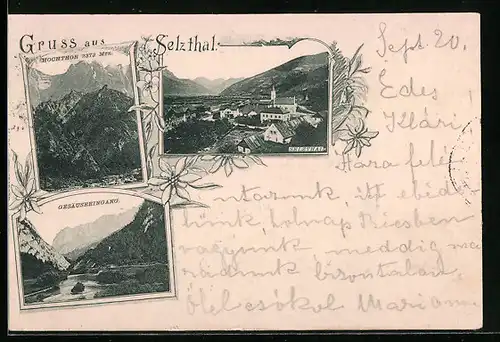 Gruss aus Selzthal.
HOCHTHOR 2372 Mtr.
SELZTHAL
GESÄUSEEINGANG.
Sept. 20.
Edes
Klári
Haza felé
utazunk, itt ebéde-
lünk, holnap Bécsben
vagyunk meddig ma
radunk bizontalan
Ölel csókol Mariann